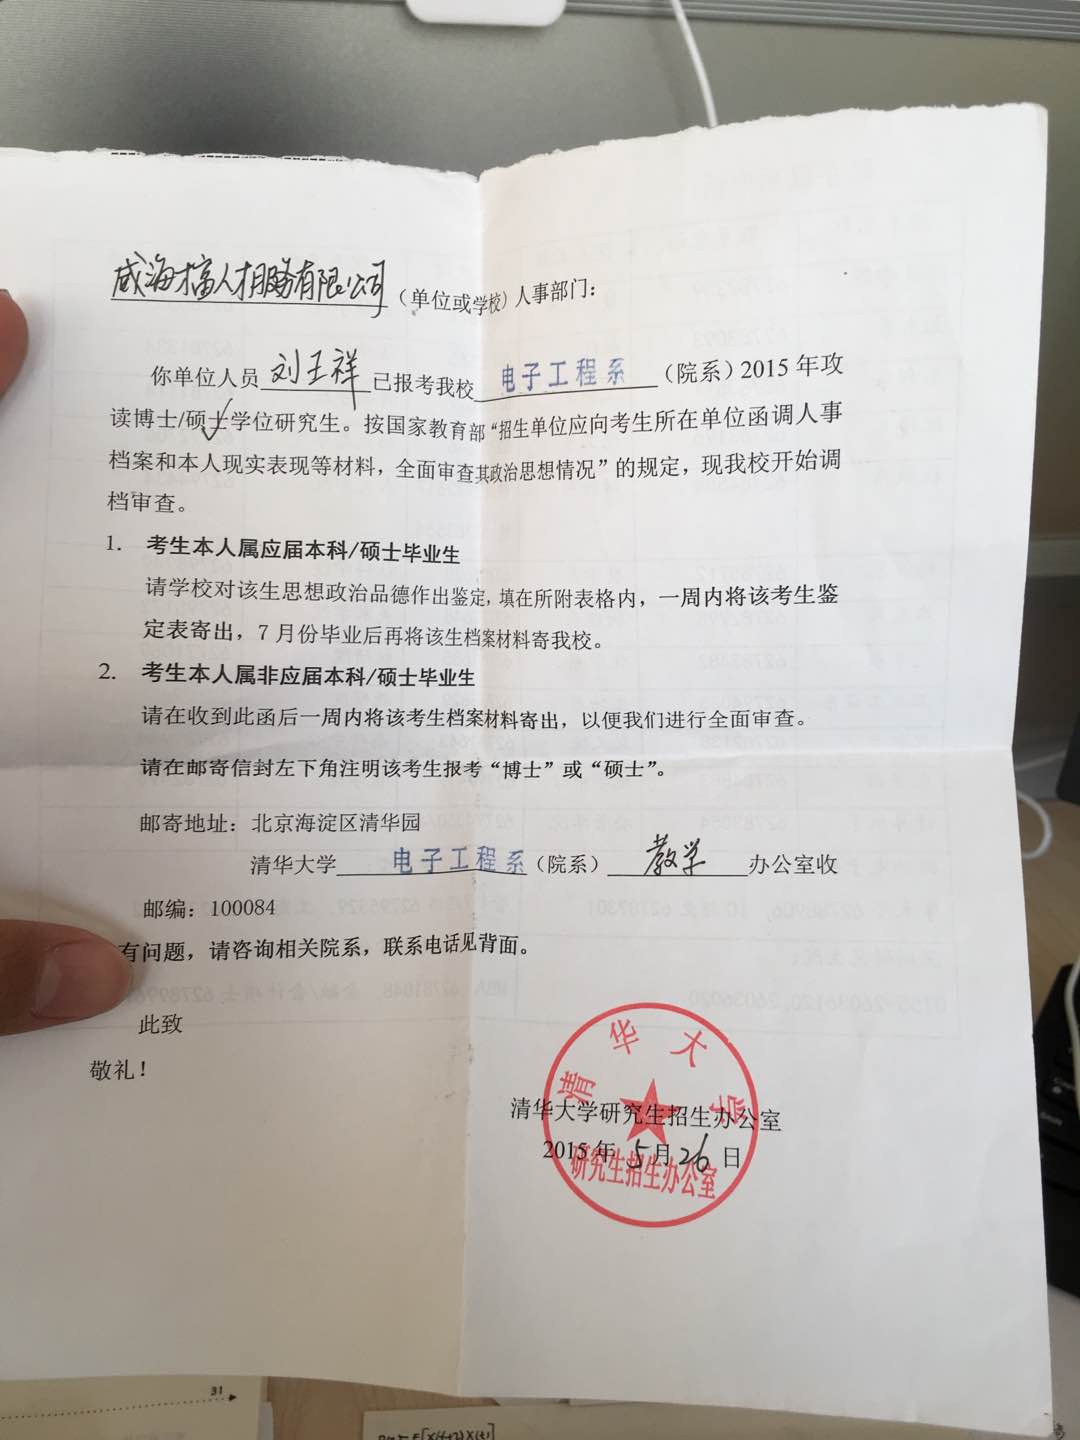 威海才富人才服务有限公司（单位或学校）人事部门：
你单位人员 刘玉祥 已报考我校 电子工程系 （院系）2015 年攻
读博士/硕士学位研究生。按国家教育部“招生单位应向考生所在单位函调人事
档案和本人现实表现等材料，全面审查其政治思想情况”的规定，现我校开始调
档审查。
1. 考生本人属应届本科/硕士毕业生
请学校对该生思想政治品德作出鉴定，填在所附表格内，一周内将该考生鉴
定表寄出，7 月份毕业后再将该生档案材料寄我校。
2. 考生本人属非应届本科/硕士毕业生
请在收到此函后一周内将该考生档案材料寄出，以便我们进行全面审查。
请在邮寄信封左下角注明该考生报考“博士”或“硕士”。
邮寄地址：北京海淀区清华园
清华大学 电子工程系（院系） 教学 办公室收
邮编：100084
有问题，请咨询相关院系，联系电话见背面。
此致
敬礼！
清华大学
清华大学研究生招生办公室
2015 年 5 月 26 日
研究生招生办公室
31